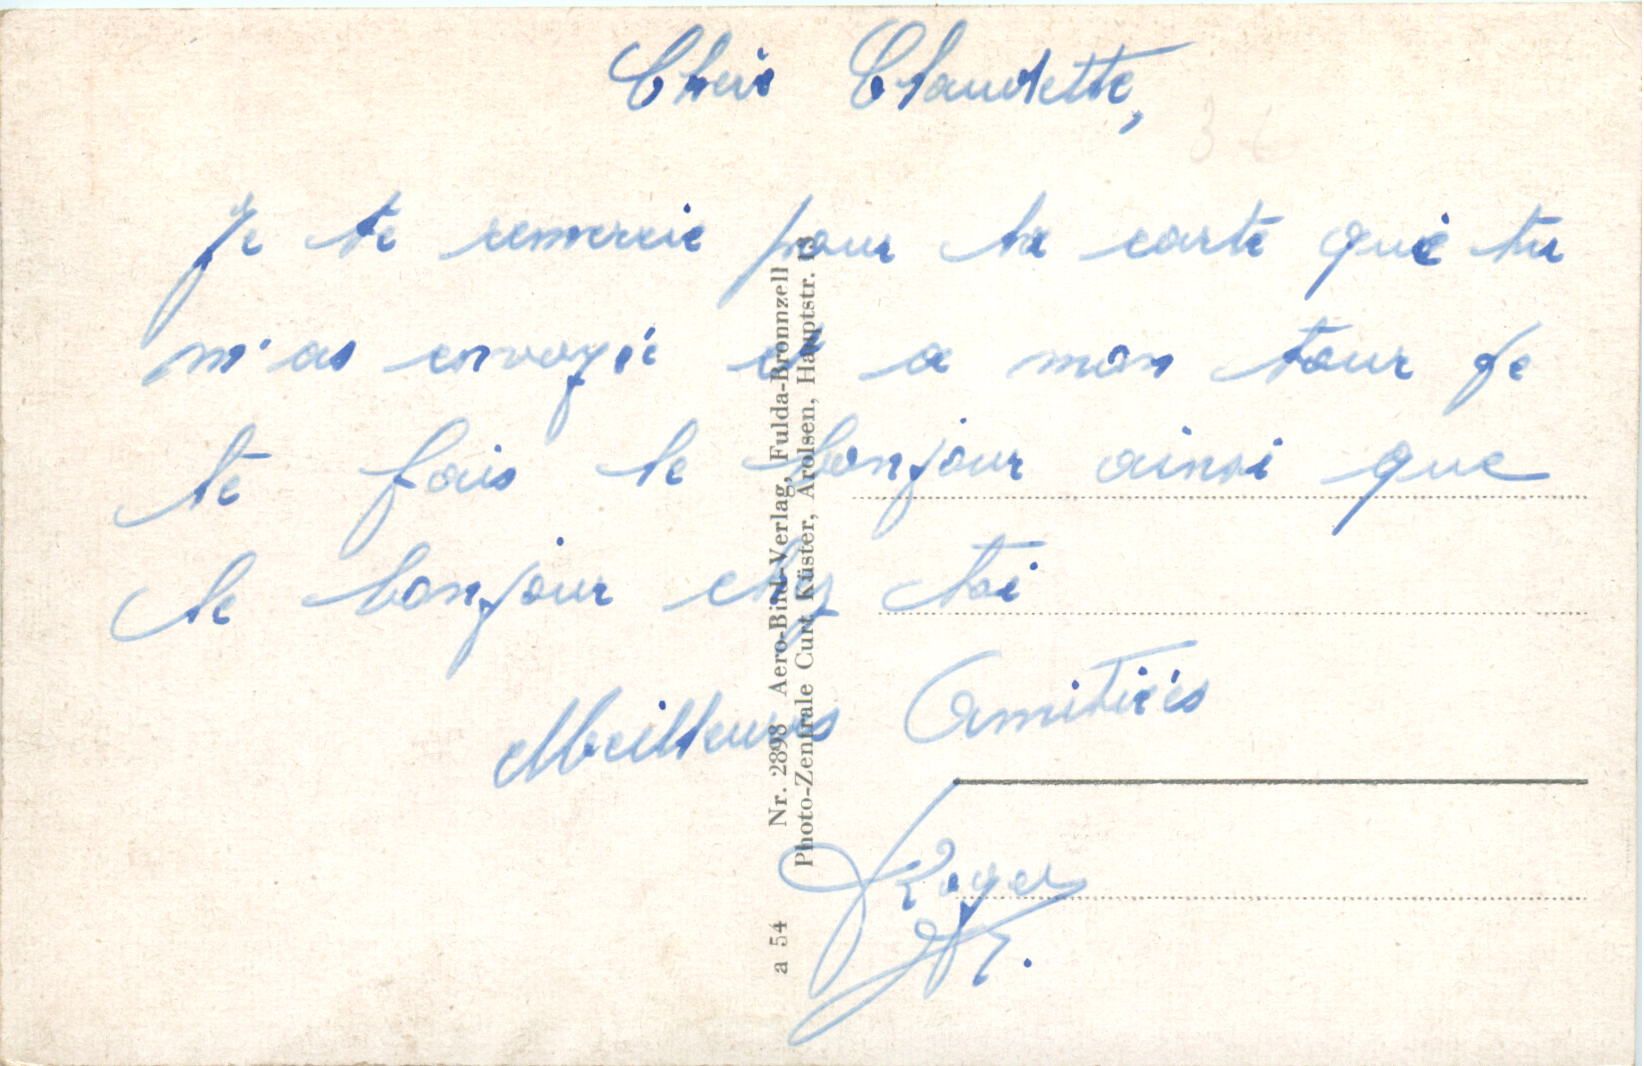 Cher Claudette,
Je te remercie pour ta carte que tu
m'as envoyé et a mon tour je
te fais le bonjour ainsi que
le bonjour chez toi
Meilleurs Amitiés
Roger
a 54 Nr. 2898 Aero-Bild-Verlag, Fulda-Bronnzell
Photo-Zentrale Curt Küster, Arolsen, Hauptstr. 13